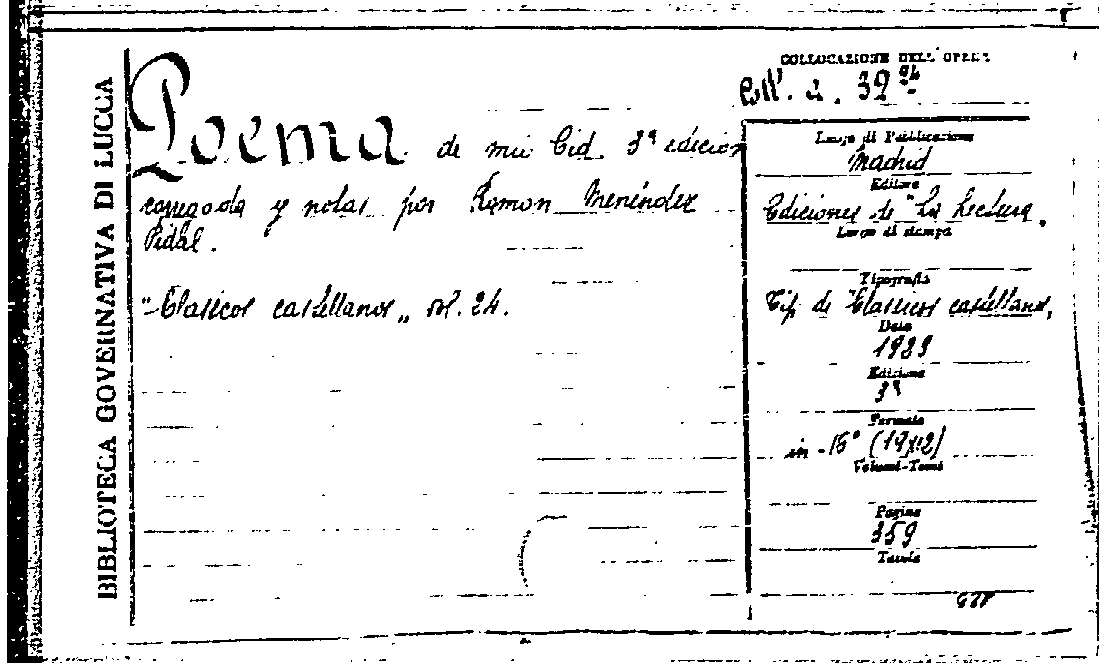 BIBLIOTECA GOVERNATIVA DI LUCCA
COLLOCAZIONE DELL'OPERA
Coll. 2. 39
Poema de mio Cid 3ª edicion
corregada y notas por Ramon Menéndez
Pidal.
"Clasicos castellanos" vol. 24.
Luogo di Pubblicazione
Madrid
Editore
Ediciones de "La Lectura"
Luogo di stampa
Tipografia
Tip. de "Clasicos castellanos"
Data
Edizione
3ª
Formato
in-16° (19x12)
Volumi-Tomi
Pagine
359
Tavole